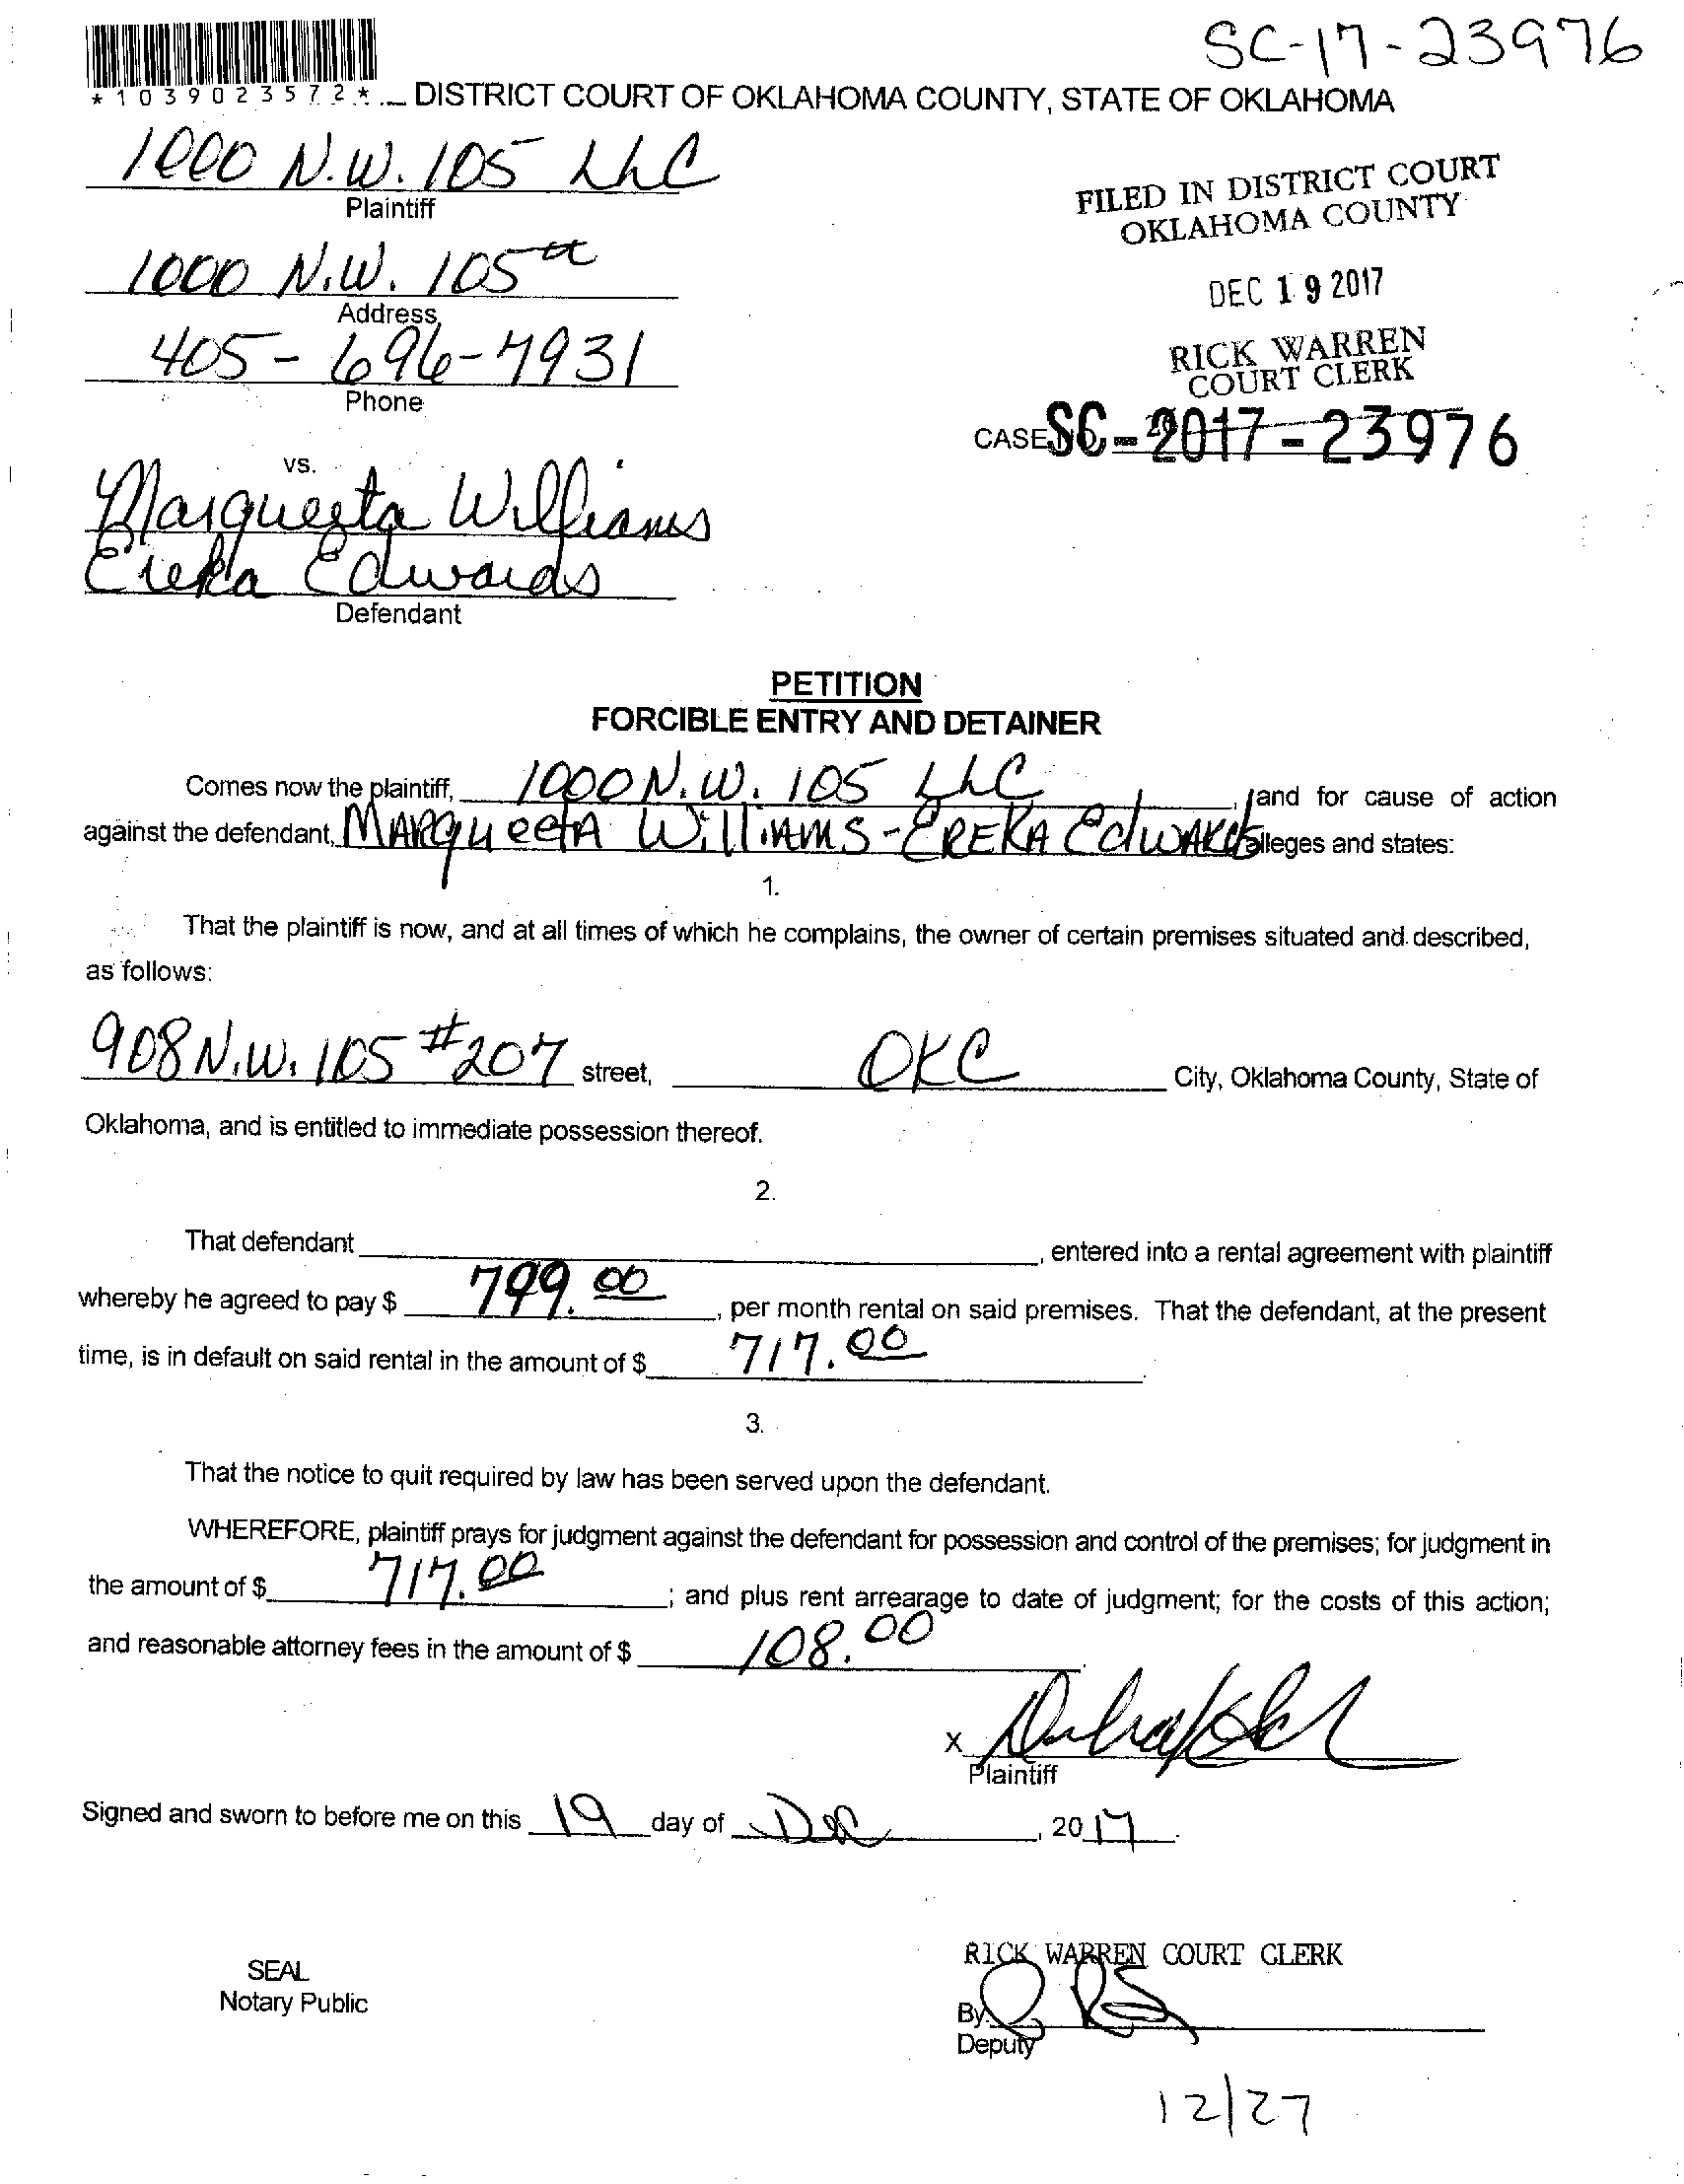 SC-17-23976
*1039023572* DISTRICT COURT OF OKLAHOMA COUNTY, STATE OF OKLAHOMA
1000 N.W. 105 LLC
Plaintiff
FILED IN DISTRICT COURT
OKLAHOMA COUNTY
1000 N.W. 105th
Address
DEC 19 2017
405-696-7931
Phone
RICK WARREN
COURT CLERK
CASE NO. SC-2017-23976
vs.
Marqueeta Williams
Ereka Edwards
Defendant
PETITION
FORCIBLE ENTRY AND DETAINER
Comes now the plaintiff, 1000 N.W. 105 LLC, and for cause of action
against the defendant, MARqueetA WilliAMS - EREKA EdwARds alleges and states:
1.
That the plaintiff is now, and at all times of which he complains, the owner of certain premises situated and described,
as follows:
908 N.W. 105 #207 street, OKC City, Oklahoma County, State of
Oklahoma, and is entitled to immediate possession thereof.
2.
That defendant , entered into a rental agreement with plaintiff
whereby he agreed to pay $ 799.00, per month rental on said premises. That the defendant, at the present
time, is in default on said rental in the amount of $ 717.00
3.
That the notice to quit required by law has been served upon the defendant.
WHEREFORE, plaintiff prays for judgment against the defendant for possession and control of the premises; for judgment in
the amount of $ 717.00 ; and plus rent arrearage to date of judgment; for the costs of this action;
and reasonable attorney fees in the amount of $ 108.00
X
Plaintiff
Signed and sworn to before me on this 19 day of Dec, 2017
SEAL
Notary Public
RICK WARREN COURT CLERK
By
Deputy
12/27